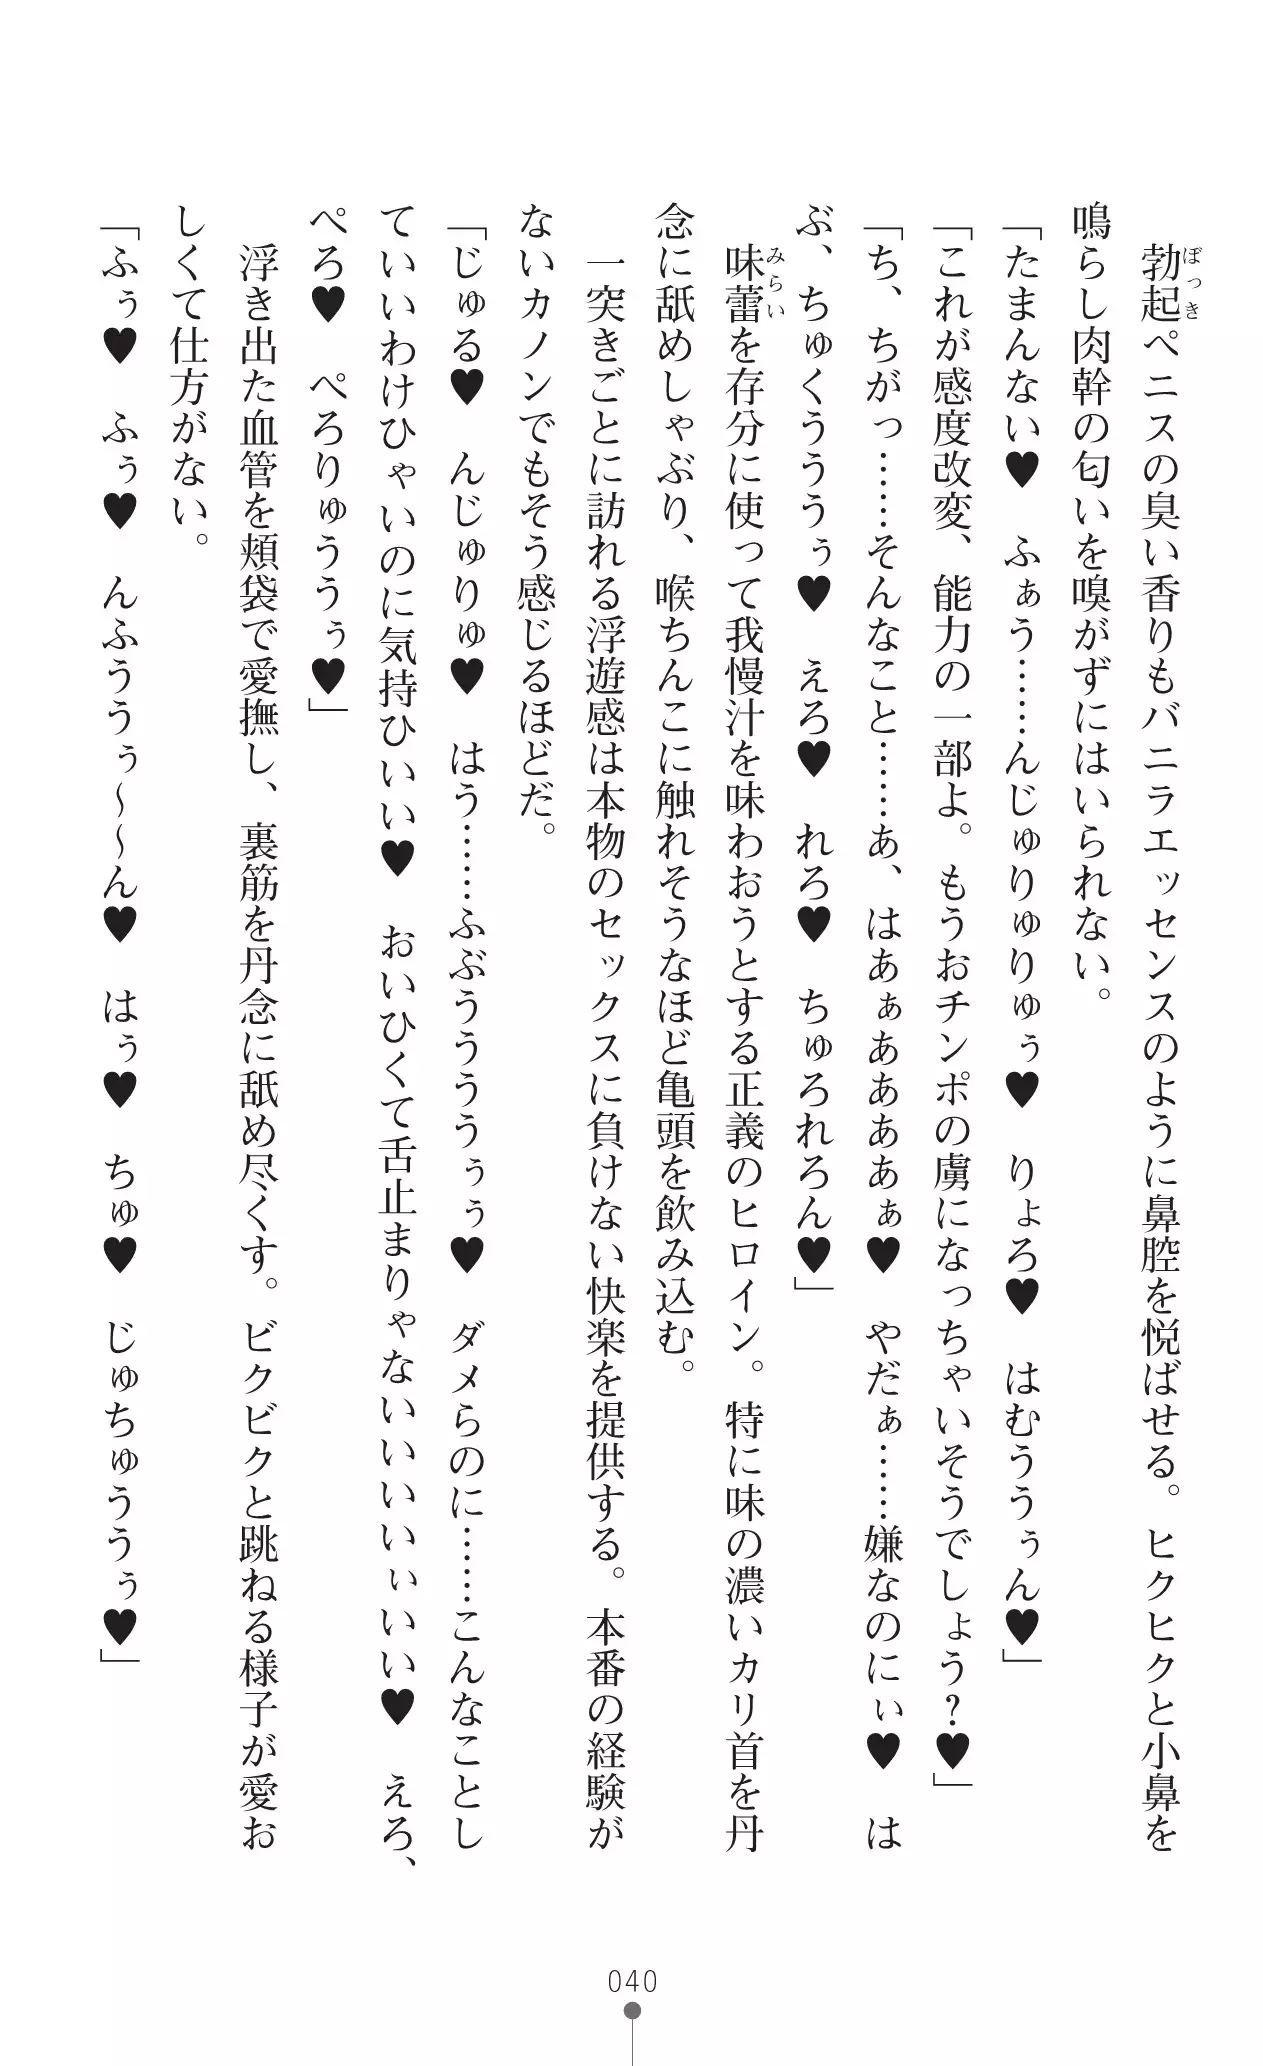 勃起ペニスの臭い香りもバニラエッセンスのように鼻腔を悦ばせる。ヒクヒクと小鼻を
鳴らし肉幹の匂いを嗅がずにはいられない。
「たまんない♥　ふぁう……んじゅりゅりゅぅ♥　りょろ♥　はむううぅん♥」
「これが感度改変、能力の一部よ。もうおチンポの虜になっちゃいそうでしょう？♥」
「ち、ちがっ……そんなこと……あ、はあぁああああぁ♥　やだぁ……嫌なのにぃ♥　は
ぶ、ちゅくうううぅ♥　えろ♥　れろ♥　ちゅろれろん♥」
味蕾を存分に使って我慢汁を味わおうとする正義のヒロイン。特に味の濃いカリ首を丹
念に舐めしゃぶり、喉ちんこに触れそうなほど亀頭を飲み込む。
一突きごとに訪れる浮遊感は本物のセックスに負けない快楽を提供する。本番の経験が
ないカノンでもそう感じるほどだ。
「じゅる♥　んじゅりゅ♥　はう……ふぶううううぅぅ♥　ダメらのに……こんなことし
ていいわけひゃいのに気持ひいい♥　おいひくて舌止まりゃないいいいぃいい♥　えろ、
ぺろ♥　ぺろりゅううぅ♥」
浮き出た血管を頬袋で愛撫し、裏筋を丹念に舐め尽くす。ビクビクと跳ねる様子が愛お
しくて仕方がない。
「ふぅ♥　ふぅ♥　んふううぅ～～ん♥　はぅ♥　ちゅ♥　じゅちゅううぅ♥」
040